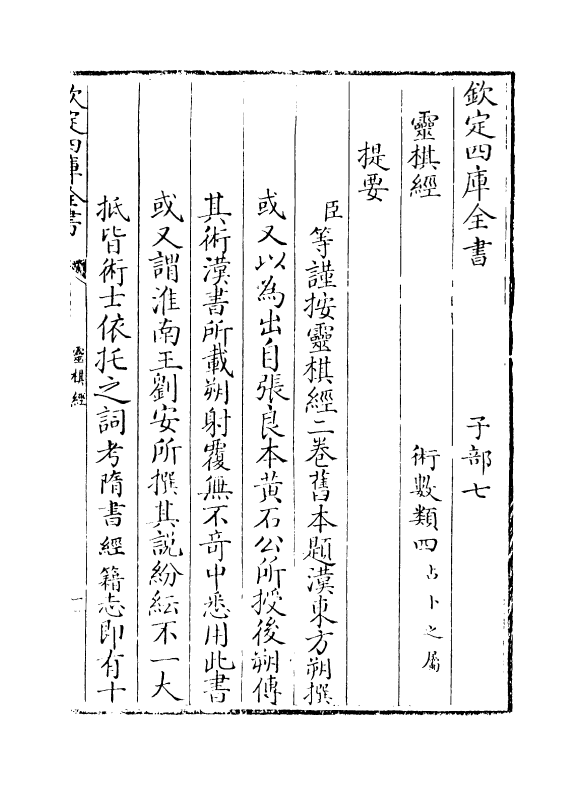 欽定四庫全書　子部七
靈棋經　術數類四占卜之屬
提要
臣等謹按靈棋經二卷舊本題漢東方朔撰
或又以為出自張良本黃石公所授後朔傳
其術漢書所載朔射覆無不竒中悉用此書
或又謂淮南王劉安所撰其說紛紜不一大
抵皆術士依托之詞考隋書經籍志即有十
欽定四庫全書
靈棋經
一